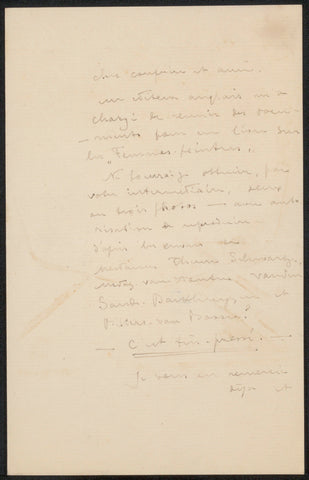 cher confrère et ami.
un éditeur anglais m'a
chargé de réunir des docu-
-ments pour un livre sur
les "Femmes-peintres".
Ne pourrais-je obtenir, par
votre intermédiaire, deux
ou trois photos — avec auto-
risation de reproduire —
d'après les œuvres de
mesdames Thérèse Schwartze,
Mesdag-van Houten, van der
Sande-Bakhuyzen et
Bisschop-van
— C'est très-pressé! —
Je vous en remercie
et